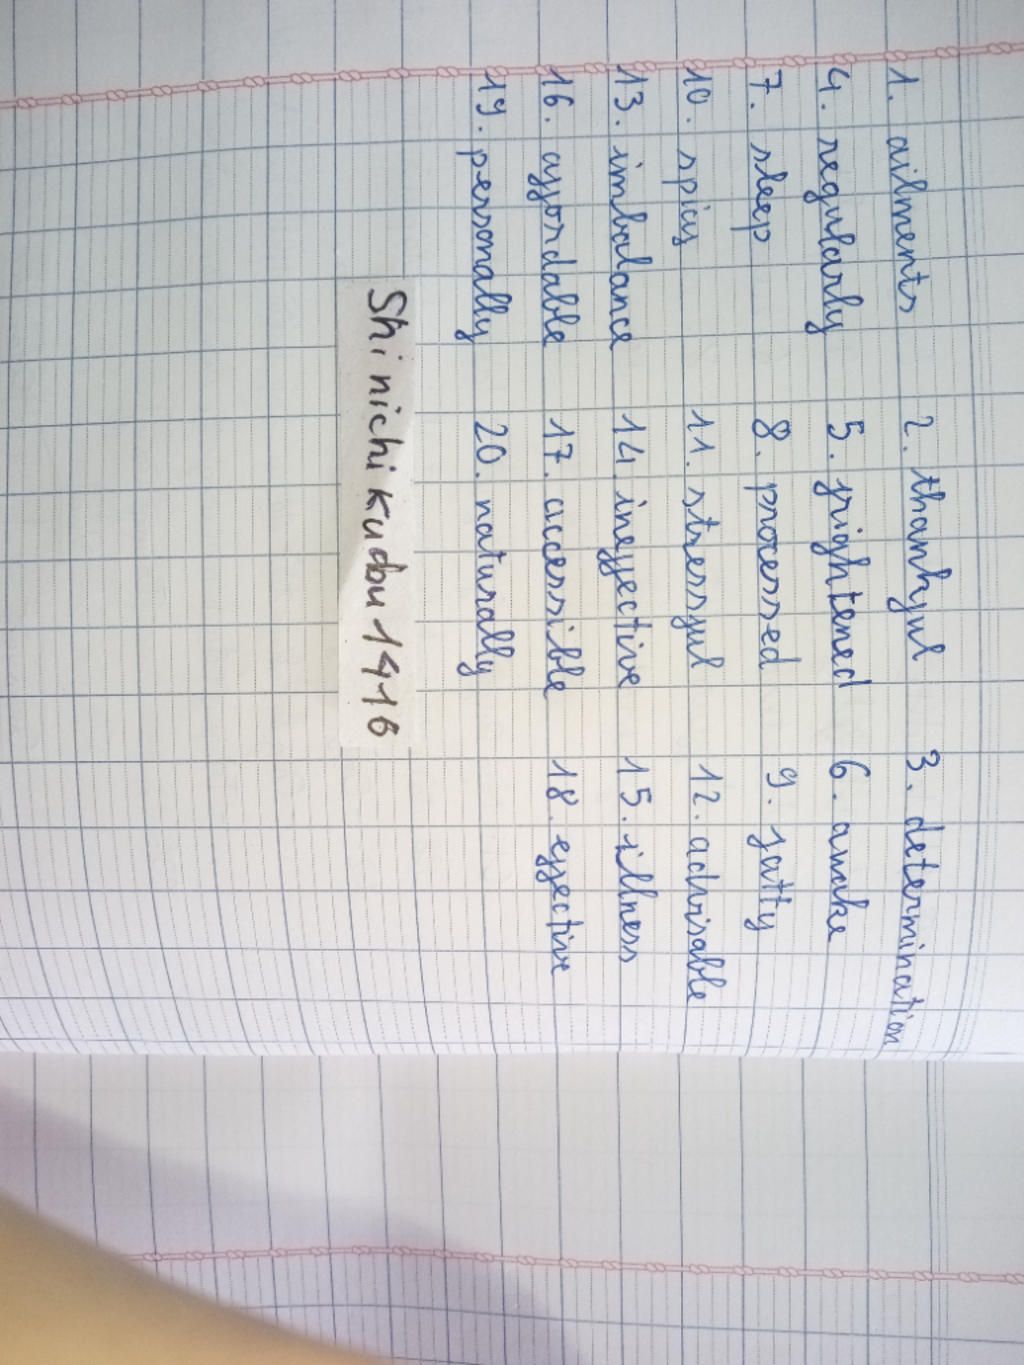 1. ailments 2. thankful 3. determination
4. regularly 5. frightened 6. awake
7. sleep 8. processed 9. fatty
10. spicy 11. stressful 12. advisable
13. imbalance 14. ineffective 15. illness
16. affordable 17. accessible 18. effective
19. personally 20. naturally
Shinichikudou1416